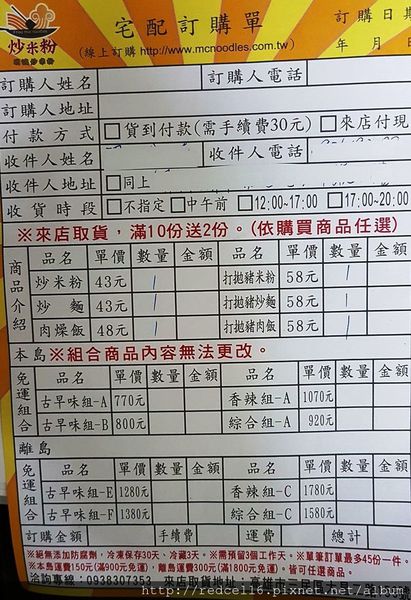 炒米粉
宅配訂購單
(線上訂購 http://www.mcnoodles.com.tw)
訂購日期
年 月
訂購人姓名 訂購人電話
訂購人地址
付款方式 □貨到付款(需手續費30元) □來店付現
收件人姓名 收件人電話
收件人地址 □同上
收貨時段 □不指定 □中午前 □12:00~17:00 □17:00~20:00
※來店取貨，滿10份送2份。(依購買商品任選)
商品介紹
品名 單價 數量 金額 品名 單價 數量 金額
炒米粉 43元 1 打拋豬米粉 58元 1
炒麵 43元 1 打拋豬炒麵 58元 1
肉燥飯 48元 1 打拋豬肉飯 58元 1
本島※組合商品內容無法更改。
免運組合
品名 單價 數量 金額 品名 單價 數量 金額
古早味組-A 770元 香辣組-A 1070元
古早味組-B 800元 綜合組-A 920元
離島
免運組合
品名 單價 數量 金額 品名 單價 數量 金額
古早味組-E 1280元 香辣組-C 1780元
古早味組-F 1380元 綜合組-C 1580元
訂購金額 手續費 運費 總計
※絕無添加防腐劑，冷凍保存30天，冷藏3天。※需預留3個工作天。※單筆訂單最多45份一件。
※本島運費150元(滿900元免運)，離島運費300元(滿1800元免運)。皆可任選商品。
洽詢專線：0938307353 來店取貨地址：高雄市三民區
http://redcell6.pixnet.net/album